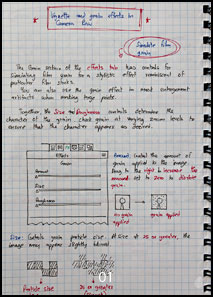 Vignette and grain effects in
Camera Raw
Simulate film
grain
The Grain section of the effects tab has controls for
simulating film grain for a stylistic effect reminiscent of
particular film stock.
You can also use the grain effect to mask enlargement
artifacts when making large prints.
Together, the Size and Roughness controls determine the
character of the grain. Check grain at varying zoom levels to
ensure that the character appears as desired.
Effects
Grain
Amount
Size
Roughness
Amount: Control the amount of
grain applied to the image.
Drag to the right to increase the
amount. set to zero to disable
grain.
no grain
applied
grain
applied
Size: Controls grain particle size. At size of 25 or greater, the
image may appear slightly blurred.
Particle size
25 or greater
01